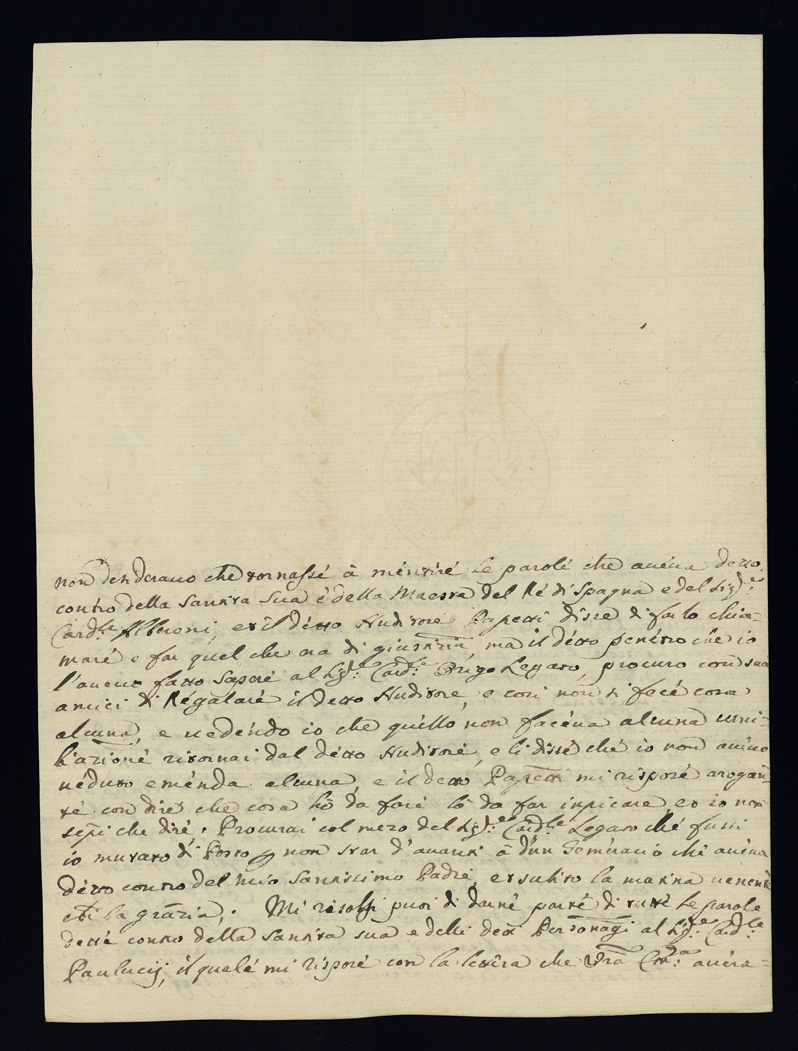 non denderano che tornassé à méntiré le parolé che auéua detto
contro della santita sua é della Maesta del Ré di spagna e del sig:re
Card:le Alberoni, et il détto Auditoré Papetti disse di farlo chia-
maré e far quel che era di giustitia, ma il détto penetro che io
l'aueuo fatto saperé al sig:re Card:le Origo Legato, procuro con sua
amici di Régalaré il detto Auditore, e cosi non si fecé cosa
alcuna, e uedendo io che quéllo non facéua alcuna umi-
liazioné ritornai dal détto Auditoré, e li dissé ché io non auéuo
ueduto eménda alcuna, e il detto Papetti mi risposé arogan-
té con diré che cosa hò da faré lò da far inpicare, et io non
sepi che diré. Procurai col mezo del sig:re Card:le Legato ché fussi
io mutato di Posto p non star d'auanti à d'un Temérario che auéua
détto contro del mio santissimo Padré et subito la matina uenenté
ebi la grazia. Mi risolsi puoi di darné parté di tutté le parole
detté contro della santita sua e delli deti Personagi al sig:re Card:le
Paulucij, il qualé mi risposé con la letéra che Vra Em:a auéra-